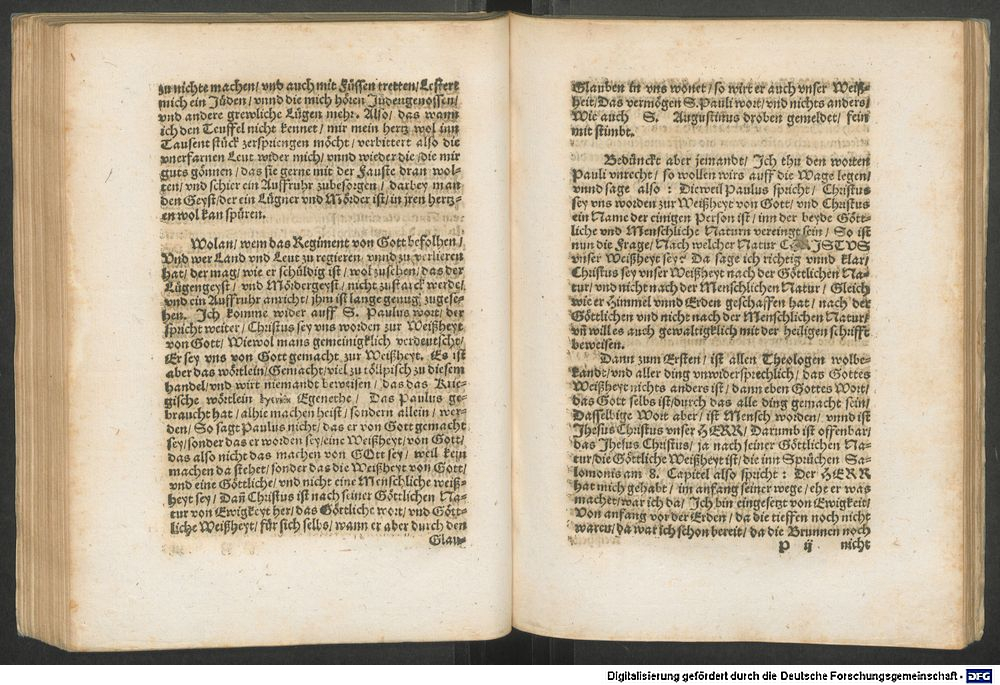 zu nichte machen/ vnd auch mit Füssen tretten/ Lestert
mich ein Jüden/ vnnd die mich hören Jüdengenossen/
vnd andere grewliche Lügen mehr. Also/ das wann
ich den Teuffel nicht kennet/ mir mein hertz wol inn
Tausent stück zerspringen möcht/ verbittert also die
vnerfarnen Leut wider mich/ vnnd wieder die/ die mir
guts gönnen/ das sie gerne mit der Fauste dran wol-
ten/ vnd schier ein Auffruhr zubesorgen/ darbey man
den Geyst/ der ein Lügner vnd Mörder ist/ in jren hertz-
en wol kan spüren.
Wolan/ wem das Regiment von Gott befolhen/
Vnd wer Land vnd Leut zu regieren/ vnnd zu verlieren
hat/ der mag/ wie er schüldig ist/ wol zusehen/ das der
Lügengeyst/ vnd Mördergeyst/ nicht zu starck werde/
vnd ein Auffruhr anricht/ jhm ist lange genug zugese-
hen. Ich komme wider auff S. Paulus wort/ der
spricht weiter/ Christus sey vns worden zur Weißheyt
von Gott/ Wiewol mans gemeinigklich verdeutscht/
Er sey vns von Gott gemacht zur Weißheyt. Es ist
aber das wörtlein/ Gemacht/ viel zu tölpisch zu diesem
handel/ vnd wirt niemandt beweisen/ das das Krie-
gische wörtlein Egenethe/ Das Paulus ge-
braucht hat/ alhie machen heist/ sondern allein/ wer-
den/ So sagt Paulus nicht/ das er von Gott gemacht
sey/ sonder das er worden sey/ eine Weißheyt/ von Gott/
das also nicht das machen von GOtt sey/ weil kein
machen da stehet/ sonder das die Weißheyt von Gott/
vnd eine Göttliche/ vnd nicht eine Menschliche weiß-
heyt sey/ Dañ Christus ist nach seiner Göttlichen Na-
tur von Ewigkeyt her/ das Göttliche wort/ vnd Gött-
liche Weißheyt/ für sich selbs/ wann er aber durch den
Glau-
Glauben in vns wonet/ so wirt er auch vnser Weiß-
heit/ Das vermögen S. Pauli wort/ vnd nichts anders/
Wie auch S. Augustinus droben gemeldet/ fein
mit stimbt.
Bedünckt aber jemandt/ Ich thu den worten
Pauli vnrecht/ so wollen wirs auff die Wage legen/
vnnd sage also : Dieweil Paulus spricht/ Christus
sey vns worden zur Weißheyt von Gott/ vnd Christus
ein Name der einigen Person ist/ inn der beyde Gött-
liche vnd Menschliche Naturn vereingt sein/ So ist
nun die Frage/ Nach welcher Natur CHRISTVS
vnser Weißheyt sey? Da sage ich richtig vnnd klar/
Christus sey vnser Weißheyt nach der Göttlichen Na-
tur/ vnd nicht nach der Menschlichen Natur/ Gleich
wie er Himmel vnnd Erden geschaffen hat/ nach der
Göttlichen vnd nicht nach der Menschlichen Natur/
vñ will es auch gewaltigklich mit der heiligen schrifft
beweisen.
Dann zum Ersten/ ist allen Theologen wolbe-
kandt/ vnd aller ding vnwidersprechlich/ das Gottes
Weißheyt nichts anders ist/ dann eben Gottes Wort/
das Gott selbs ist/ durch das alle ding gemacht sein/
Dasselbige Wort aber/ ist Mensch worden/ vnnd ist
Jhesus Christus vnser HERR/ Darumb ist offenbar/
das Jhesus Christus/ ja nach seiner Göttlichen Na-
tur/ die Göttliche Weißheyt ist/ die inn Sprüchen Sa-
lomonis am 8. Capitel also spricht : Der HERR
hat mich gehabt/ im anfang seiner wege/ ehe er was
machet/ war ich da/ Ich bin eingesetzt von Ewigkeit/
Von anfang vor der Erden/ da die tieffen noch nicht
waren/ da war ich schon bereit/ da die Brunnen noch
P ij nicht
Digitalisierung gefördert durch die Deutsche Forschungsgemeinschaft - DFG